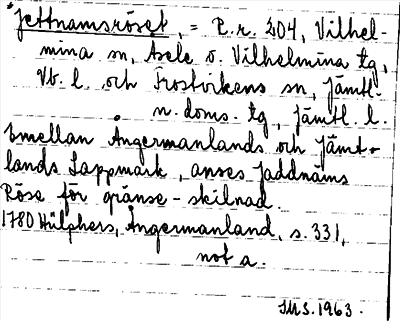 *Jettnamsröset, = R.r. 204, Vilhel-
mina sn, Åsele o. Vilhelmina tg,
Vb. l. och Frostvikens sn, Jämtl.
n. doms. tg, Jämtl. l.
Emellan Ångermanlands och Jämt-
lands Lappmark, anses Jaddnäms
Röse för gränse-skilnad.
1780 Hülphers, Ångermanland, s. 331,
not a.
IMS. 1963.